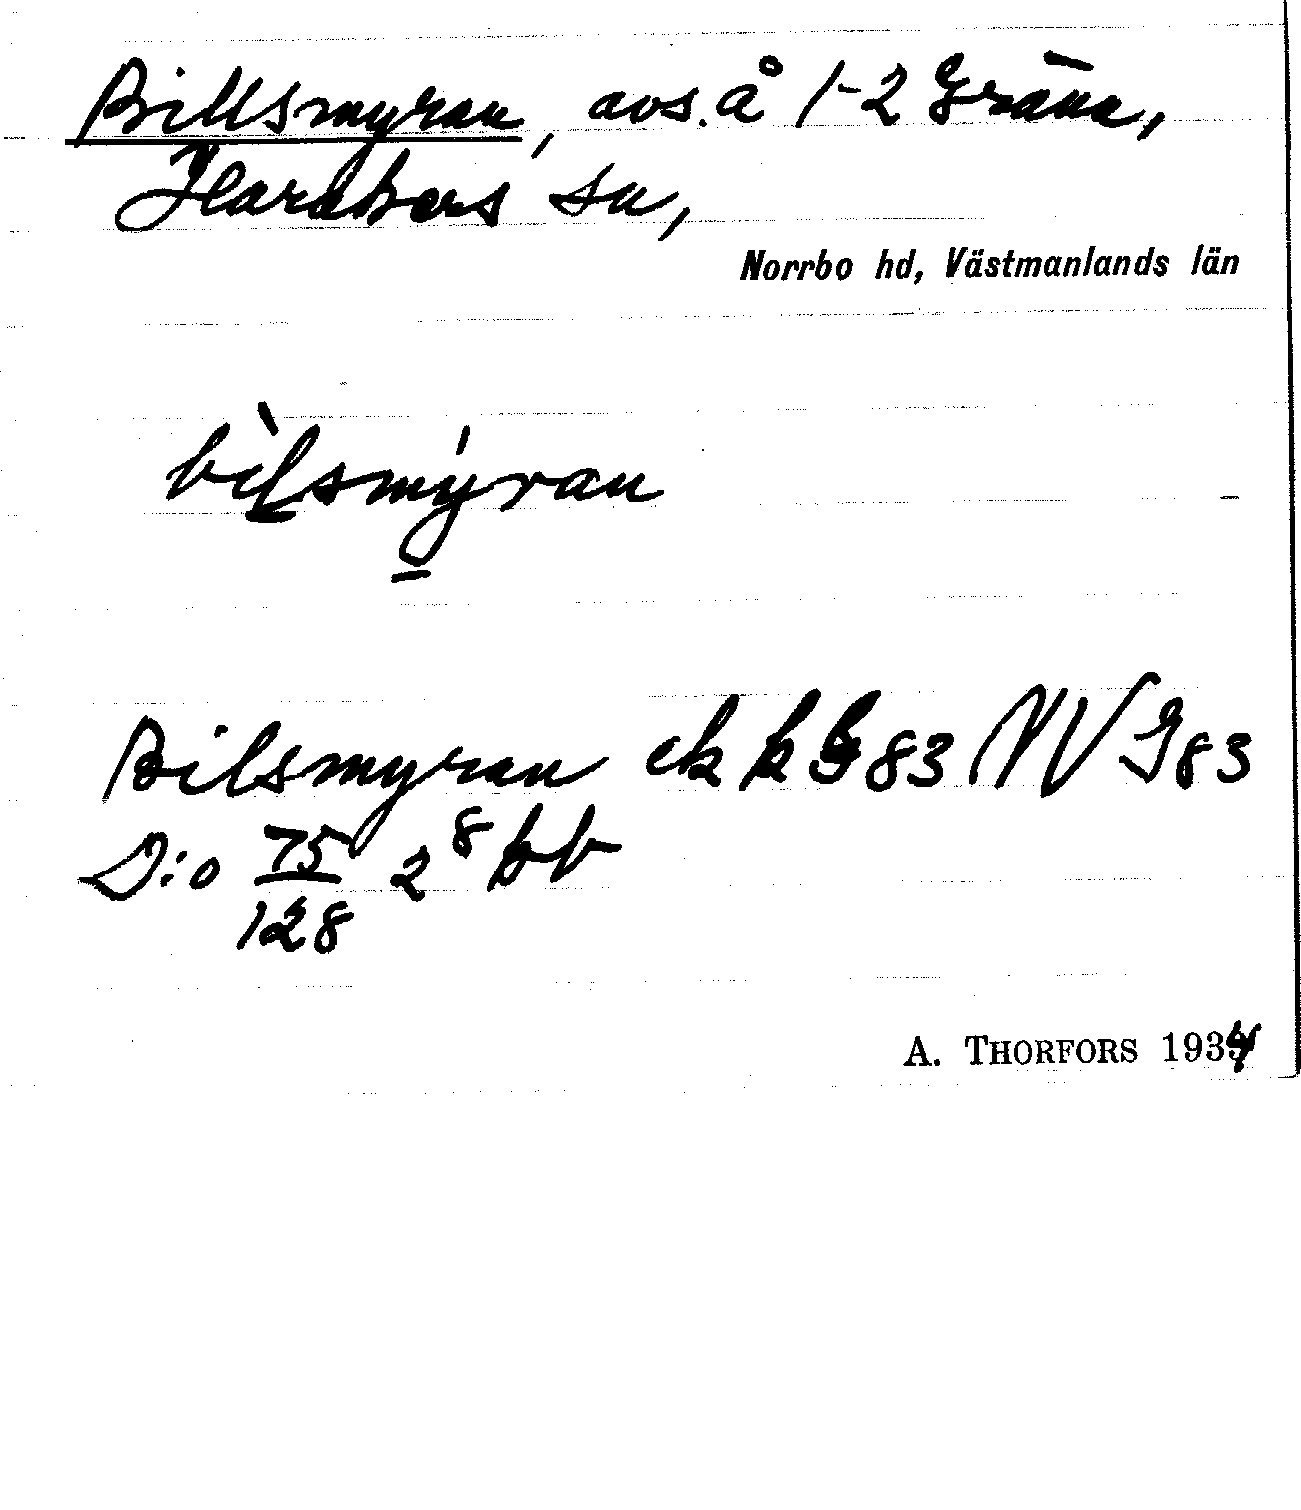 Billsmyran, avs. å 1-2 Gräna,
Haraker sn,
Norrbo hd, Västmanlands län
bìlsmýran
Bilsmyran ek k G 83 NV G83
D:o 75/128 2 8 bb
A. THORFORS 1934